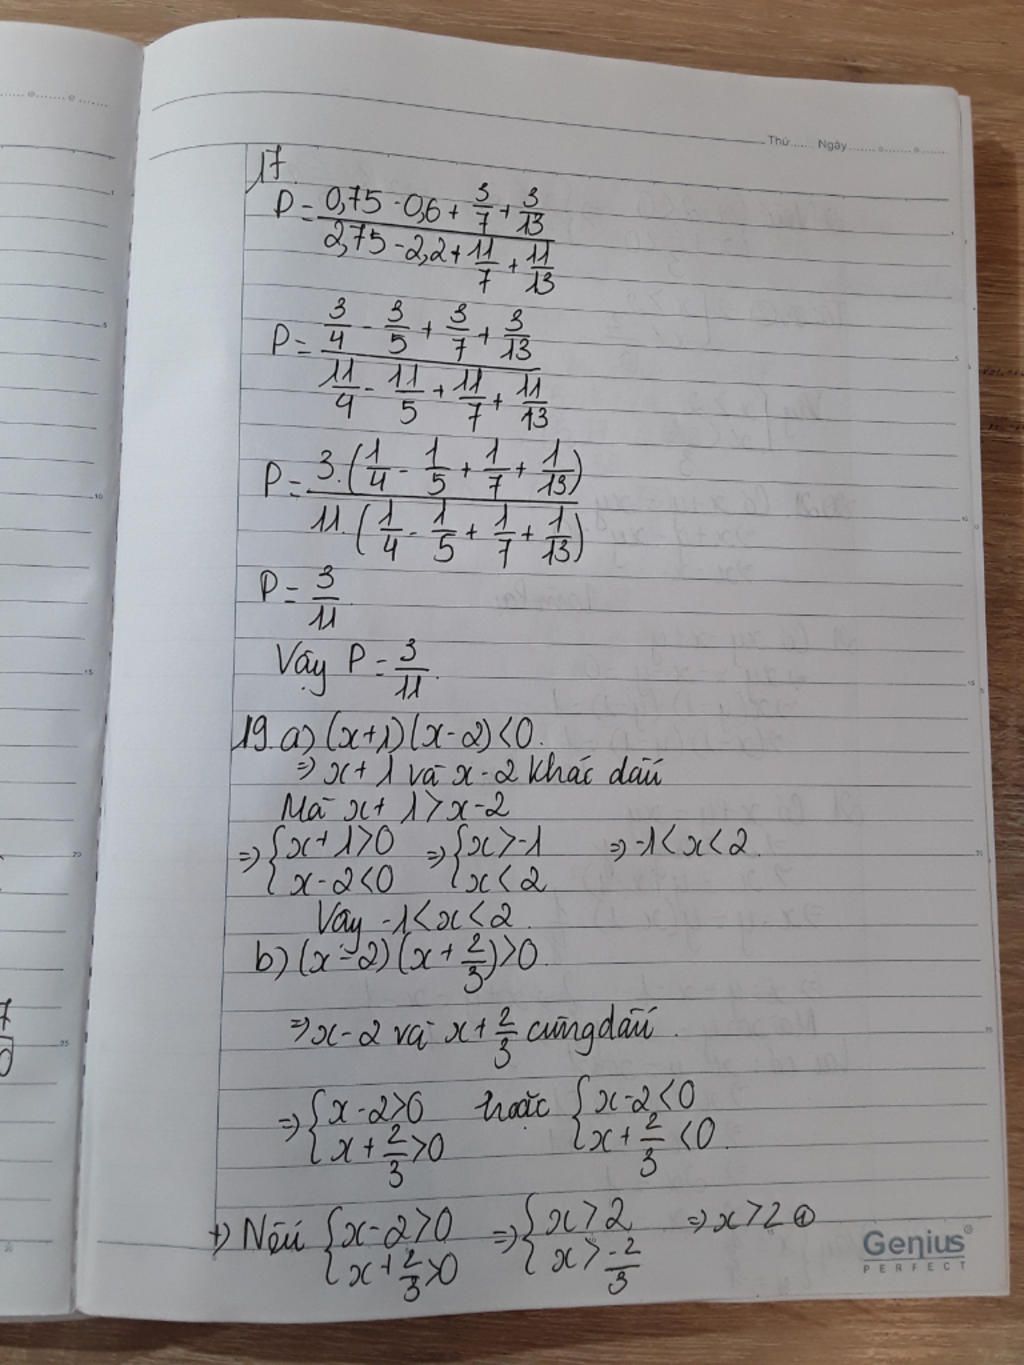 Thứ...... Ngày.......
17.
P = \frac{0,75 - 0,6 + \frac{3}{7} + \frac{3}{13}}{2,75 - 2,2 + \frac{11}{7} + \frac{11}{13}}
P = \frac{\frac{3}{4} - \frac{3}{5} + \frac{3}{7} + \frac{3}{13}}{\frac{11}{4} - \frac{11}{5} + \frac{11}{7} + \frac{11}{13}}
P = \frac{3.(\frac{1}{4} - \frac{1}{5} + \frac{1}{7} + \frac{1}{13})}{11.(\frac{1}{4} - \frac{1}{5} + \frac{1}{7} + \frac{1}{13})}
P = \frac{3}{11}.
Vậy P = \frac{3}{11}.
19. a) (x+1)(x-2)<0.
=> x+1 và x-2 khác dấu
Mà x+1>x-2
=> {x+1>0 x-2<0 => {x>-1 x<2 => -1<x<2.
Vậy -1<x<2.
b) (x-2)(x+\frac{2}{3})>0.
=> x-2 và x+\frac{2}{3} cùng dấu.
=> {x-2>0 x+\frac{2}{3}>0 hoặc {x-2<0 x+\frac{2}{3}<0.
+) Nếu {x-2>0 x+\frac{2}{3}>0 => {x>2 x>\frac{-2}{3} => x>2 ①
Genius
PERFECT